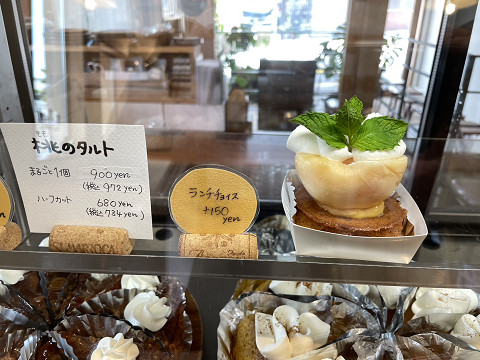 もも
桃のタルト
まるごと1個 900yen
(税込 972yen)
ハーフカット 680yen
(税込 734yen)
ランチチョイス
+150
yen